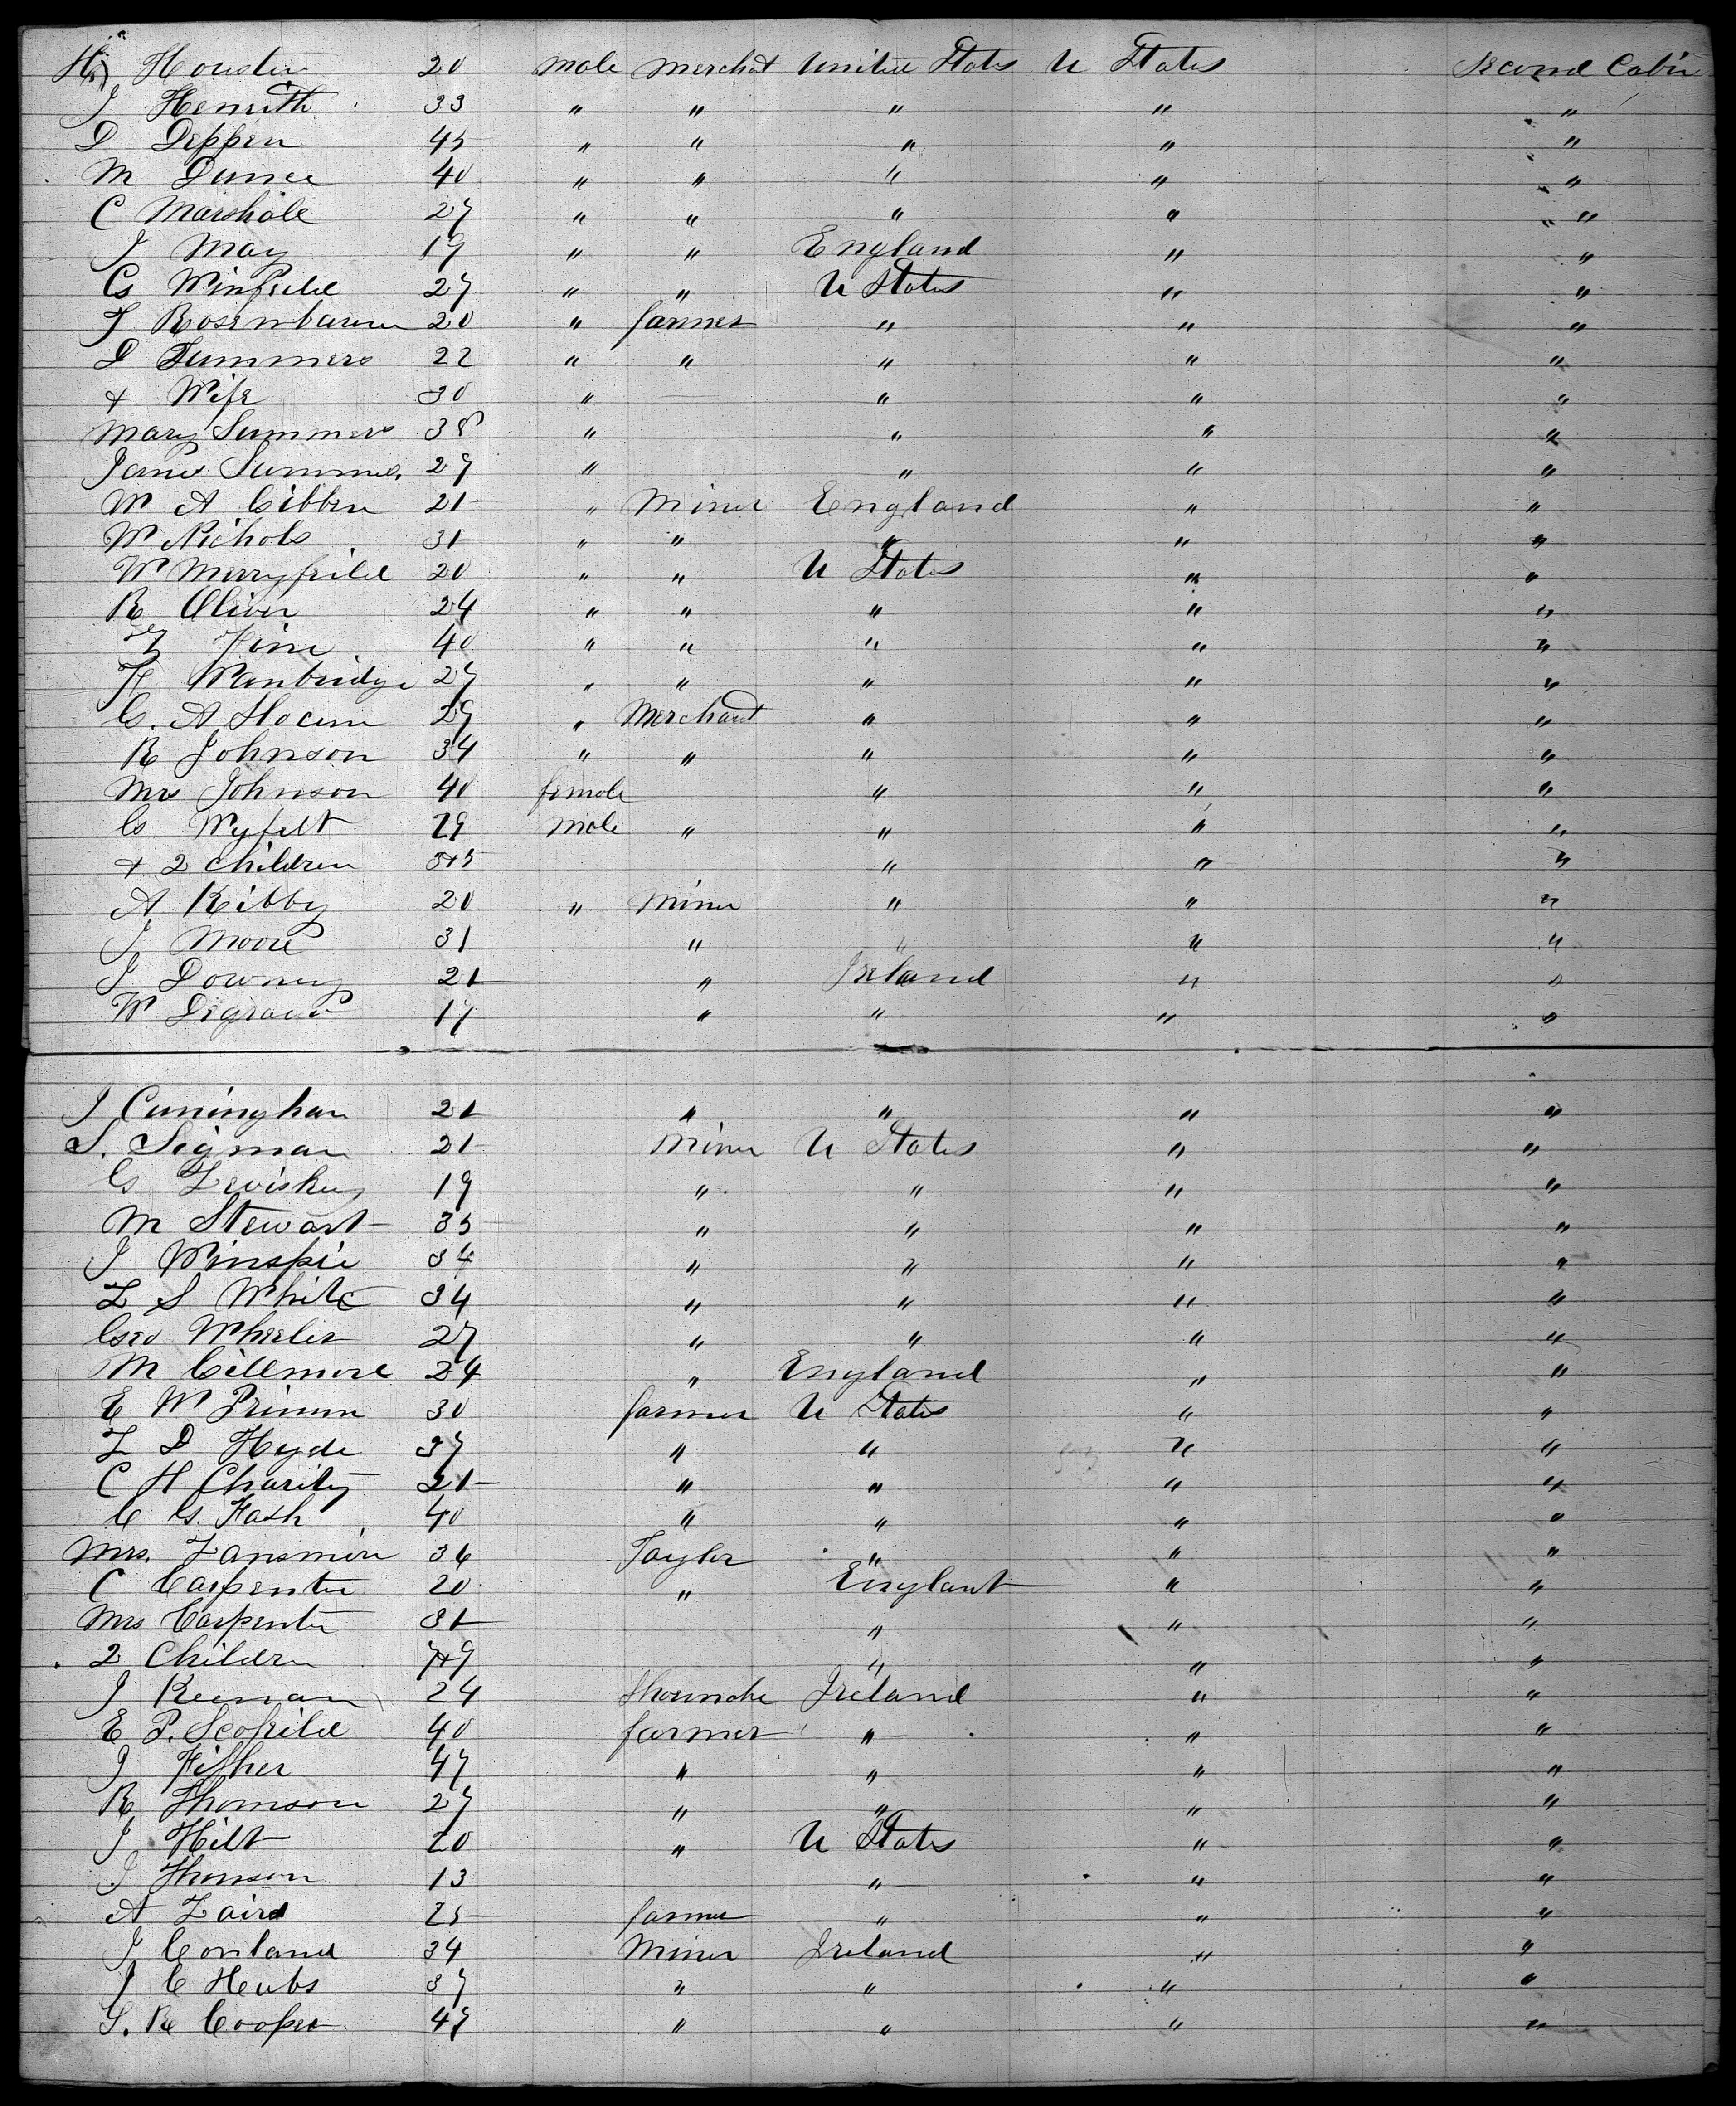 H Houston 20 male merchat United States U States Second Cabin
J Henrith 33 " " " " "
D Deppen 45 " " " " "
M Dunce 40 " " " " "
C Marshall 27 " " " " "
J May 19 " " England " "
G Winfield 27 " " U States " "
J Rosenbaum 20 " farmer " " "
D Summers 22 " " " " "
+ Wife 30 " " " "
Mary Summers 38 " " " "
Jane Summers 29 " " " "
W A Gibben 21 " Miner England " "
W Nichols 31 " " " " "
W Merryfield 20 " " U States " "
R Oliver 24 " " " " "
40 " " " " "
H Wanbridge 27 " " " " "
G. A Slocum 29 " Merchant " " "
R Johnson 34 " " " " "
Mrs Johnson 40 female " " "
G Wyfelt 29 male " " " "
+ 2 children 3+5 " " "
A Kibby 20 " Miner " " "
J Moore 31 " " " "
J Downey 21 " Ireland " "
W Degraw 17 " " " "
J Cuningham 21 " " " "
S. Sigman 21 Miner U States " "
G Leviskey 19 " " " "
M Stewart 35 " " " "
J Winspie 34 " " " "
L S White 34 " " " "
Geo Wheeler 27 " " " "
M Gillmore 24 " England " "
E W Primm 30 farmer U States " "
L D Hyde 37 " " " "
C H Charity 21 " " " "
C G. Fash 40 " " " "
Mrs. Lansmin 36 Taylor " " "
C Carpenter 20 " Englant " "
Mrs Carpenter 31 " " "
2 Children 7+9 " " "
J Keenan 24 Ireland " "
E P. Scofield 40 farmer " " "
J Fisher 47 " " " "
R Thomson 27 " " " "
J Hilt 20 " U States " "
J Thomson 13 " " "
A Laird 25 farmer " " "
J Conland 34 Miner Ireland " "
J C Heubs 37 " " " "
S. R Cooper 47 " " " "